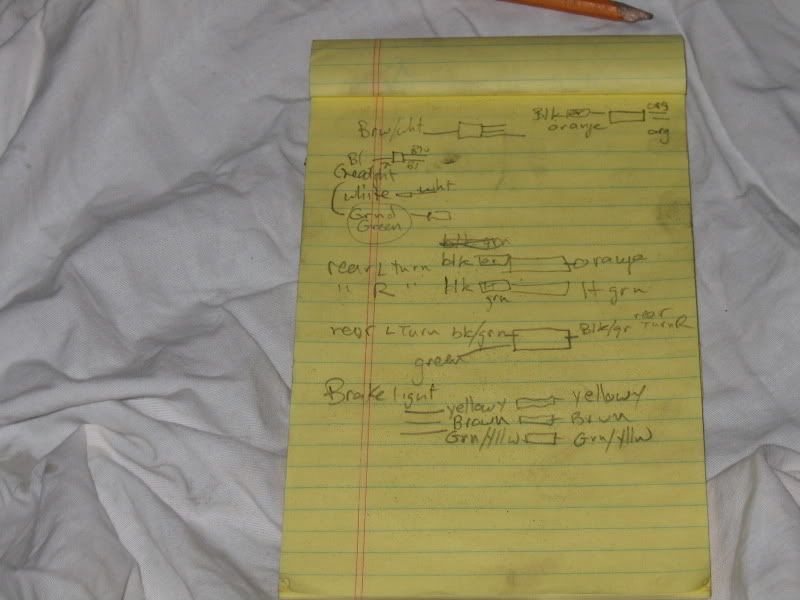 Blk org
Brw/wht orange org
Bl
white wht
Grnd
Green
rear L turn blk orange
" R " blk lt grn
grn
rear L Turn bk/grn Blk/gr rear Turn R
green
Brake light
yellowy yellowy
Brown Brwn
Grn/yllw Grn/yllw